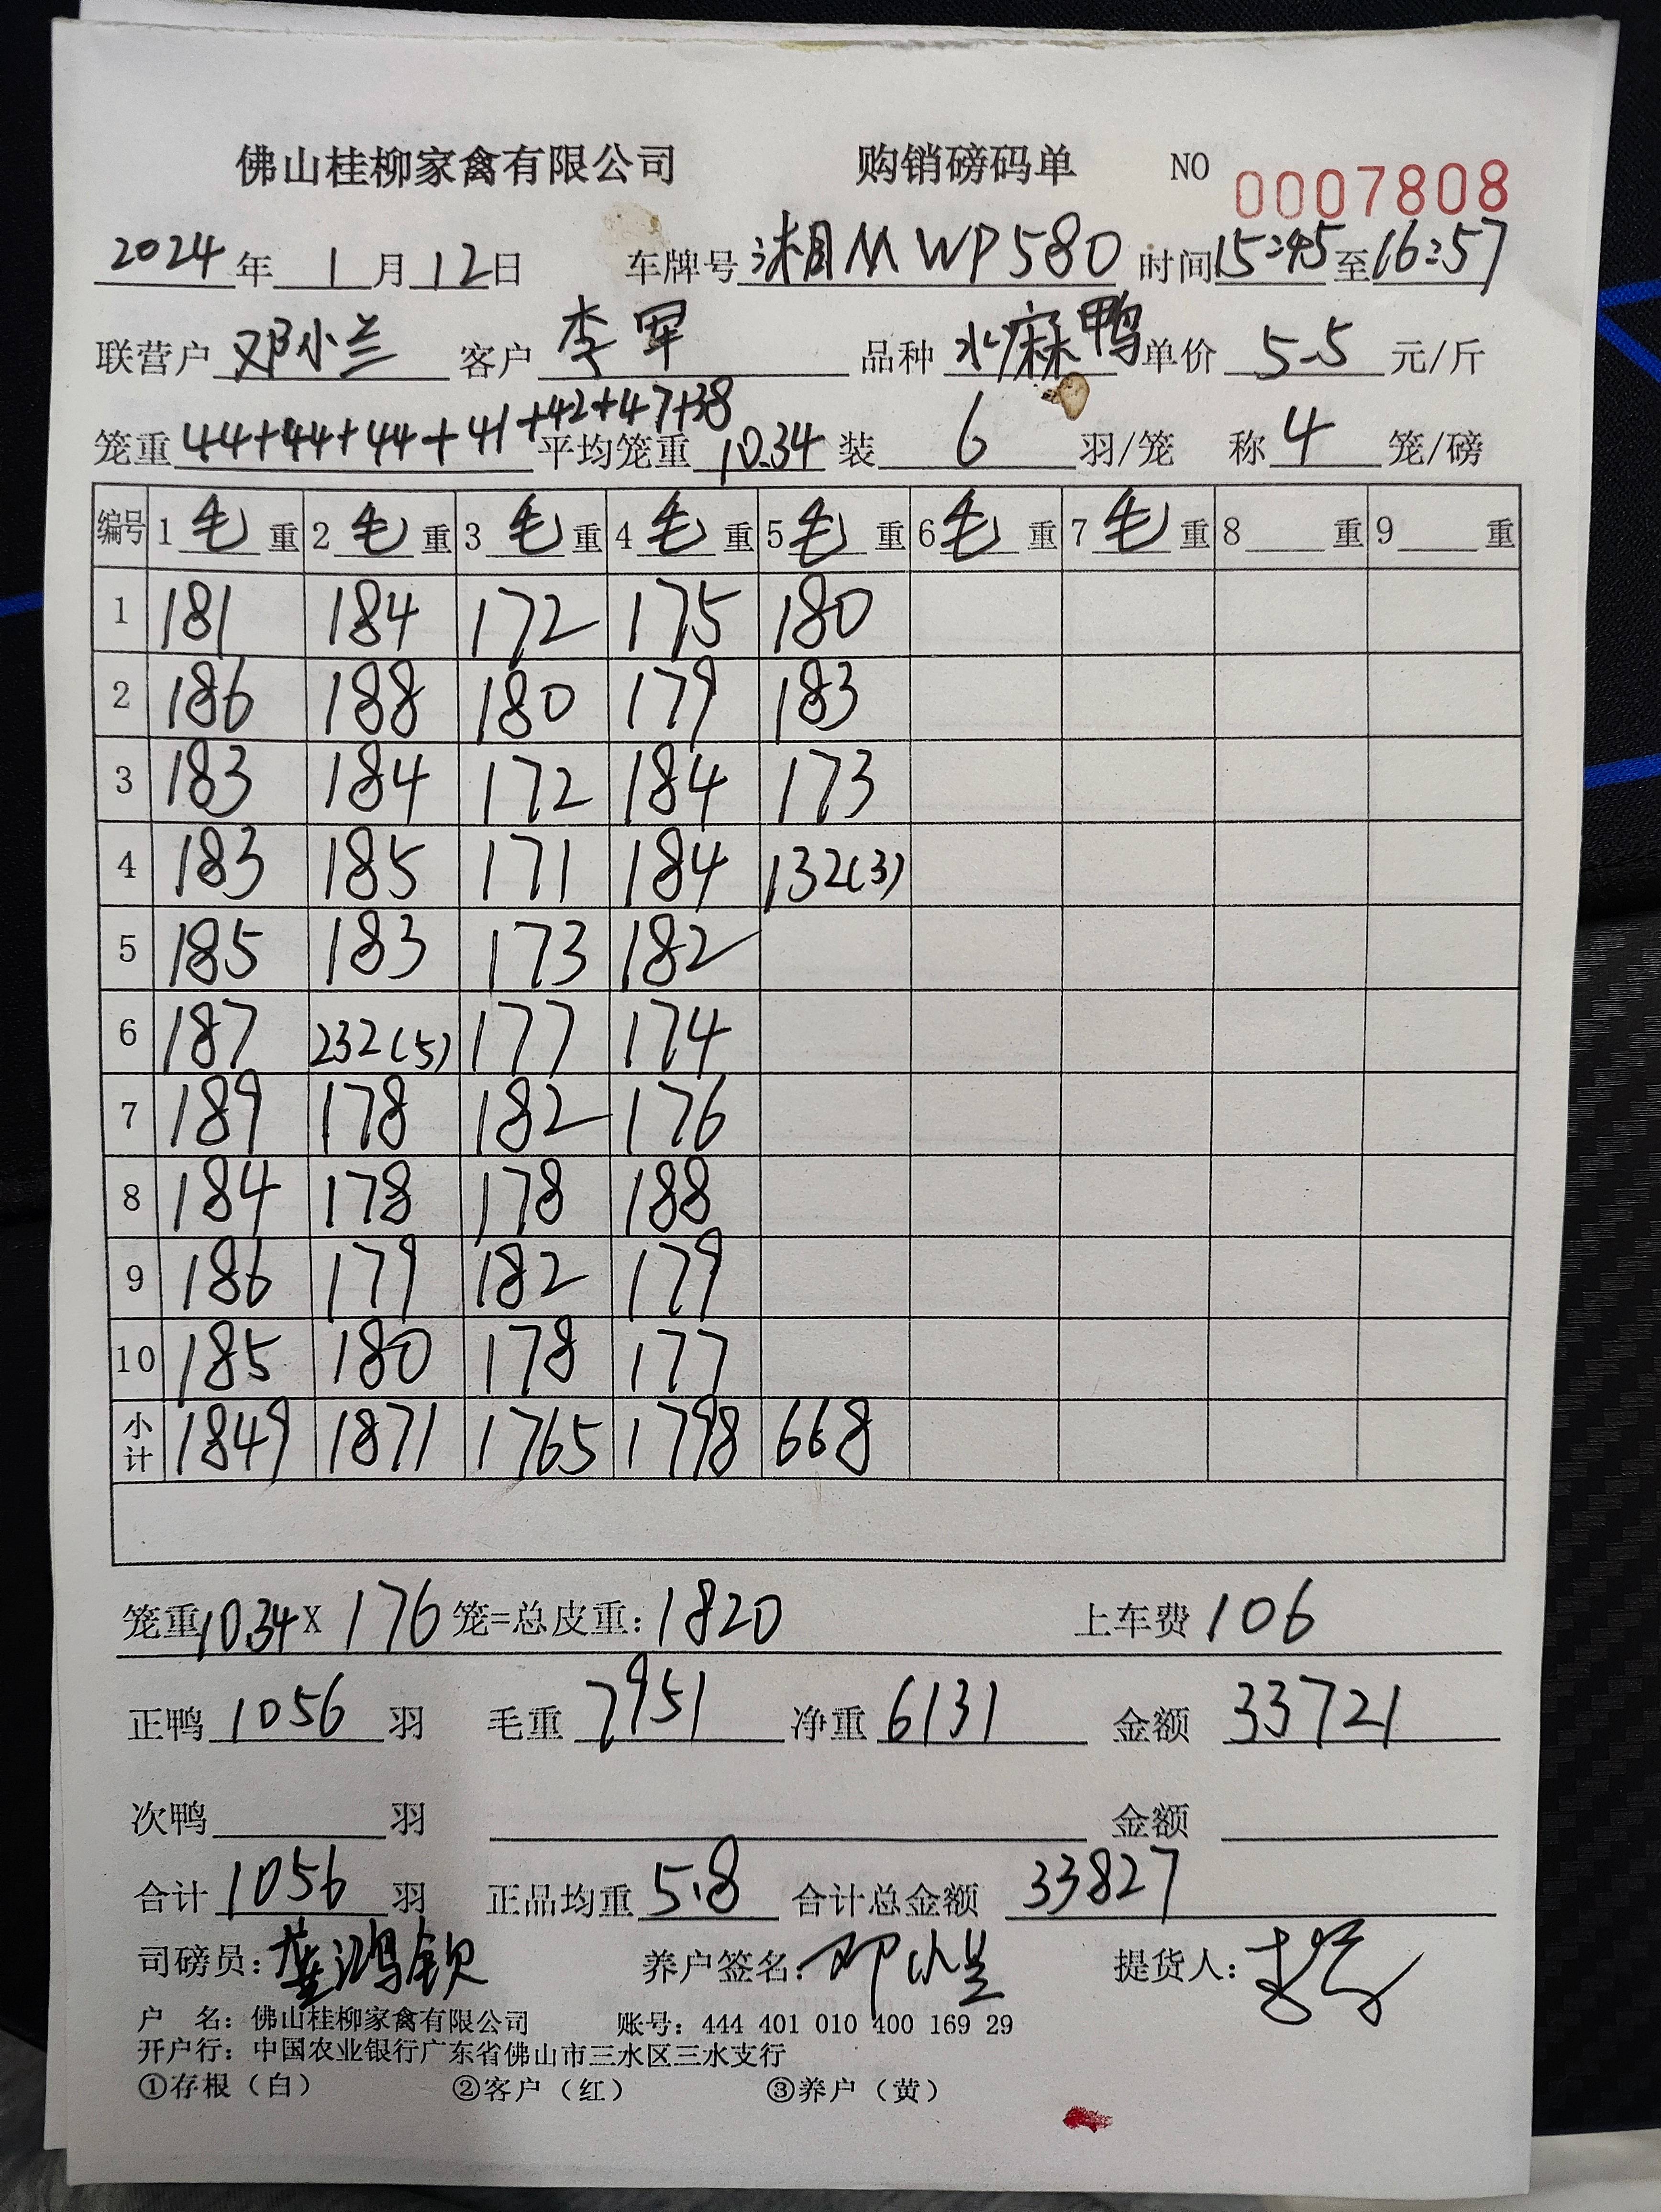 佛山桂柳家禽有限公司 购销磅码单 NO 0007808
2024年 1月12日 车牌号 湘M WP580 时间15:45至16:57
联营户 邓小兰 客户 李军 品种 水麻鸭 单价 5.5 元/斤
笼重 44+44+44+41+42+47+38 平均笼重 10.34 装 6 羽/笼 称 4 笼/磅
编号 1 毛 重 2 毛 重 3 毛 重 4 毛 重 5 毛 重 6 毛 重 7 毛 重 8 重 9 重
1 181 184 172 175 180
2 186 188 180 179 183
3 183 184 172 184 173
4 183 185 171 184 132(3)
5 185 183 173 182
6 187 232(5) 177 174
7 189 178 182 176
8 184 178 178 188
9 186 179 182 179
10 185 180 178 177
小计 1849 1871 1765 1798 668
笼重10.34 X 176 笼=总皮重: 1820 上车费 106
正鸭 1056 羽 毛重 7951 净重 6131 金额 33721
次鸭 羽 金额
合计 1056 羽 正品均重 5.8 合计总金额 33827
司磅员: 龚鸿钦 养户签名: 邓小兰 提货人: 李军
户 名: 佛山桂柳家禽有限公司 账号: 444 401 010 400 169 29
开户行: 中国农业银行广东省佛山市三水区三水支行
①存根（白） ②客户（红） ③养户（黄）